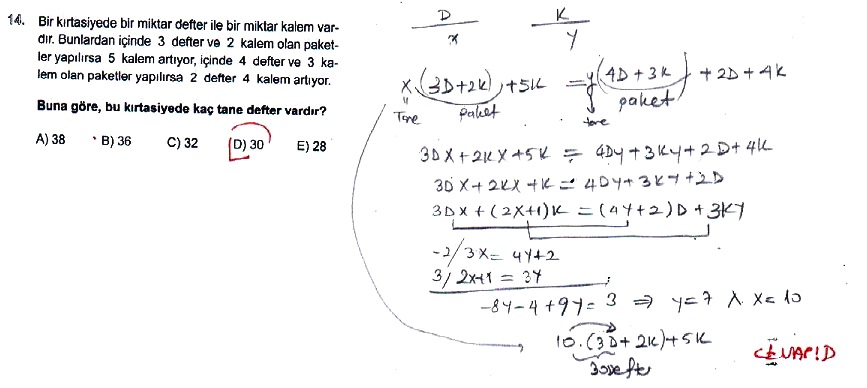 14. Bir kırtasiyede bir miktar defter ile bir miktar kalem var-
dır. Bunlardan içinde 3 defter ve 2 kalem olan paket-
ler yapılırsa 5 kalem artıyor, içinde 4 defter ve 3 ka-
lem olan paketler yapılırsa 2 defter 4 kalem artıyor.
Buna göre, bu kırtasiyede kaç tane defter vardır?
A) 38 B) 36 C) 32 D) 30 E) 28
D K
x y
x.(3D+2K)+5K = y(4D+3K)+2D+4K
Tane paket tane paket
3DX+2KX+5K = 4Dy+3Ky+2D+4K
3DX+2KX+K = 4Dy+3KY+2D
3DX+(2X+1)K = (4Y+2)D+3KY
-2/3X = 4Y+2
3/2X+1 = 3Y
-8Y-4+9Y = 3 ⇒ y=7 ∧ x=10
10.(3D+2K)+5K
30 Defter
CEVAP!D